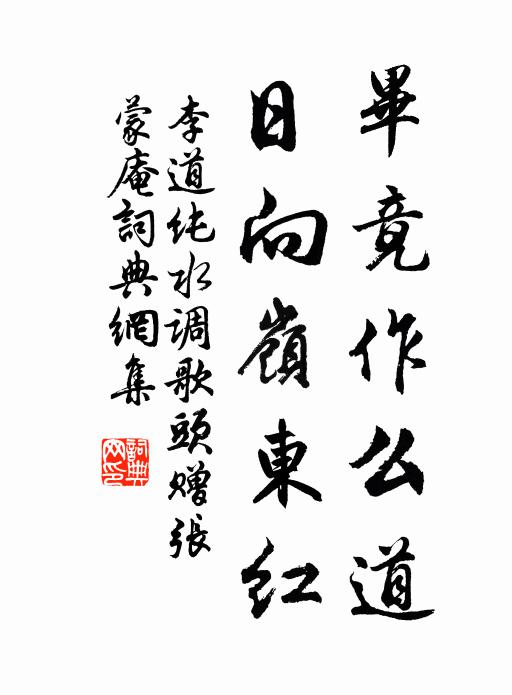 畢竟作么道
日向嶺東紅
李道纯水调歌頭赠張
蒙庵詞典網集
詞典网印